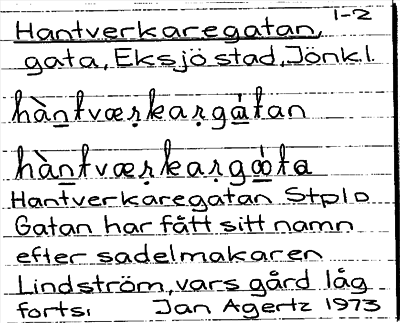 1-2
Hantverkaregatan,
gata, Eksjö stad, Jönk.l.
hàn̲tvæṛkaṛgа̲̍tan
hàn̲tvæṛkaṛgọ́ta
Hantverkaregatan Stplo
Gatan har fått sitt namn
efter sadelmakaren
Lindström, vars gård låg
forts. Jan Agertz 1973